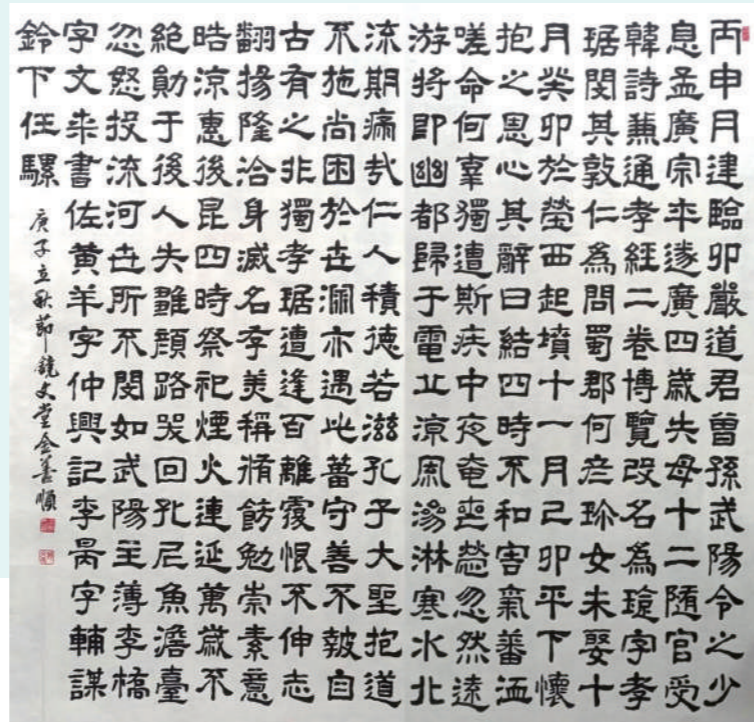 丙申月建臨卯嚴道君曾孫武陽令之少
息孟廣宗卒遂廣四歲失母十二隨官受
韓詩兼通孝經二卷博覽改名為琁字孝
琚閔其敦仁為問蜀郡何彥珍女未娶十
月癸卯於塋西起墳十一月己卯平下懷
抱之恩心其辭曰結四時不和害氣蕃洍
嗟命何辜獨遭斯疾中夜奄喪忽然遠
游將即幽都歸于電丘涼風滲淋寒水北
流期痛哉仁人積德若滋孔子大聖抱道
不施尚困於世淵亦遇此菑守善不報自
古有之非獨孝琚遭逢百離覆恨不伸志
翻揚隆洽身滅名存美稱脩飭勉崇素意
晧涼惠後昆四時祭祀煙火連延萬歲不
絕勛于後人失雛顏路哭回孔尼魚澹臺
忿怒投流河世所不閔如武陽主薄李橋
字文来書佐黃羊字仲興記李昺字輔謀
鈴下任騾
庚子立秋節鏡文堂金善順